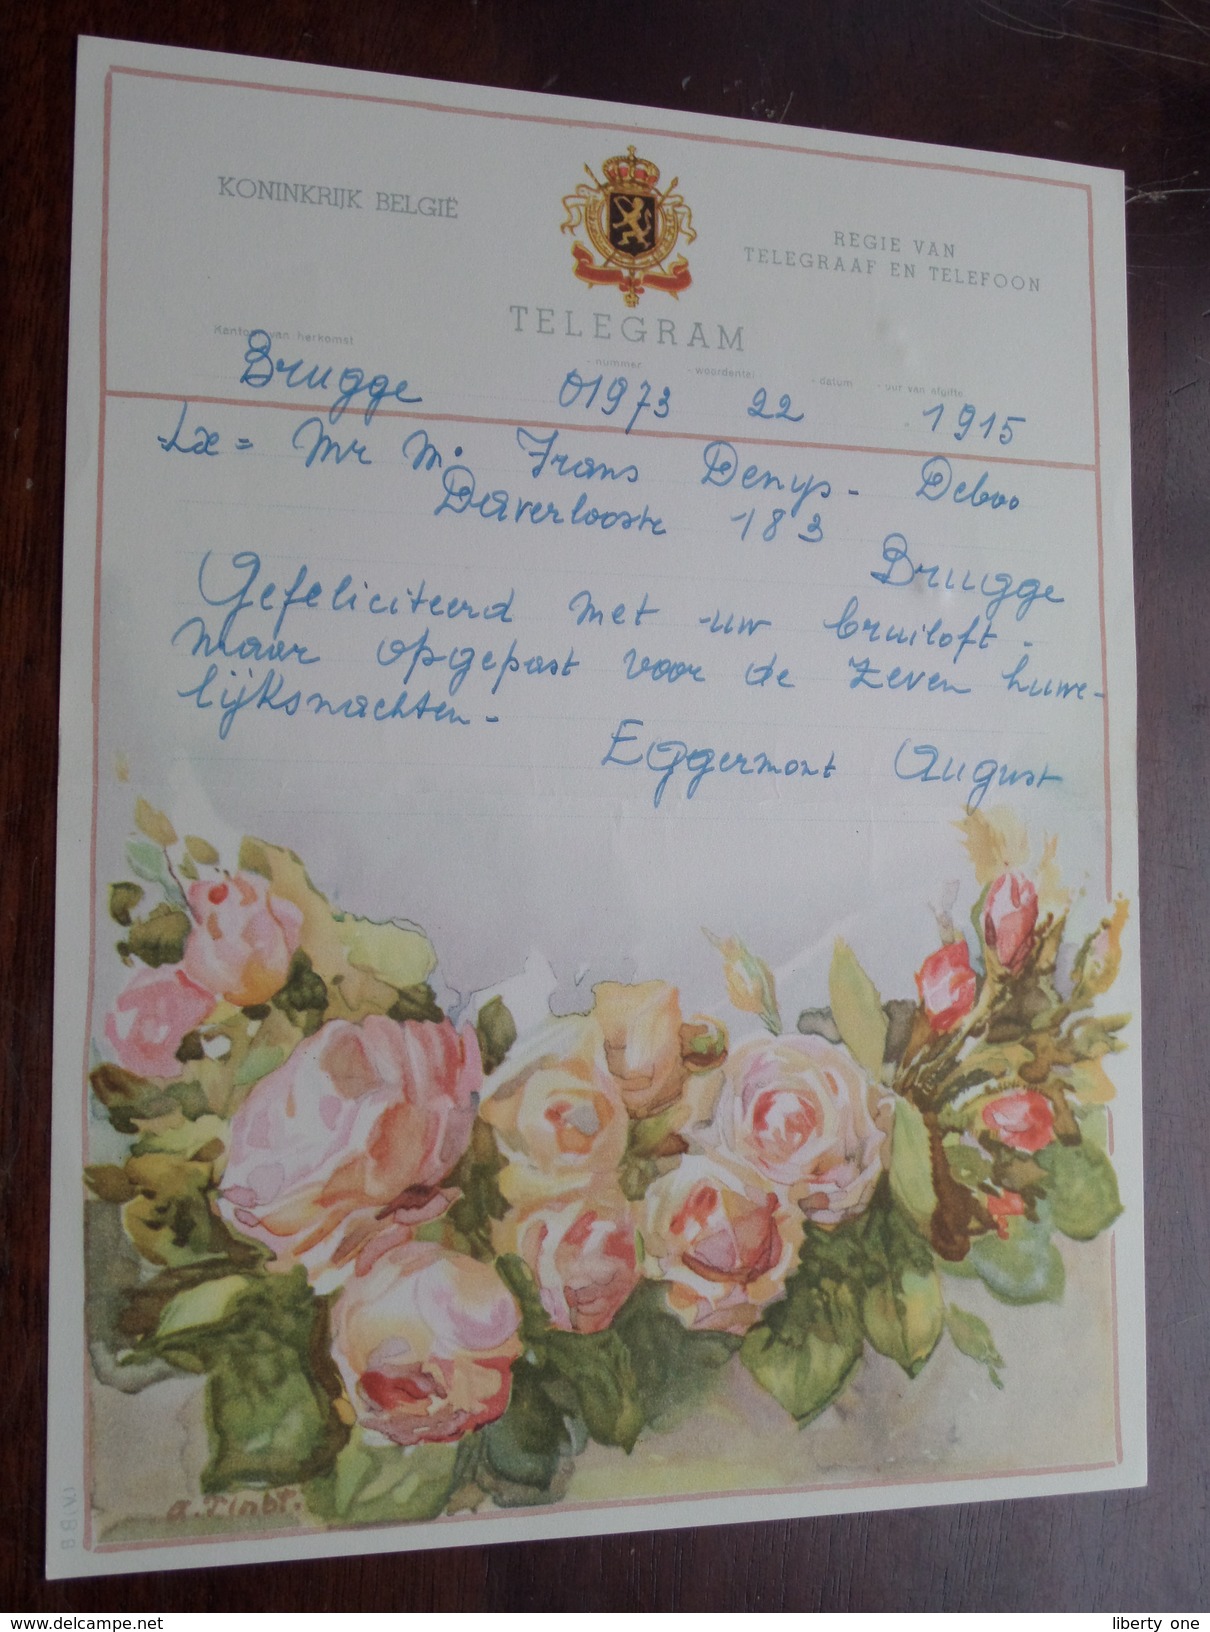 KONINKRIJK BELGIË
REGIE VAN
TELEGRAAF EN TELEFOON
TELEGRAM
Kantoor van herkomst - nummer - woordental - datum - uur van afgifte
Brugge 01973 22 1915
Lx = Mr M. Frans Denys - Deboo
Daverlostr 183
Brugge
Gefeliciteerd met uw bruiloft -
Maar opgepast voor de zeven huwe-
lijksnachten -
Eggermont August
delcampe.net
liberty_one